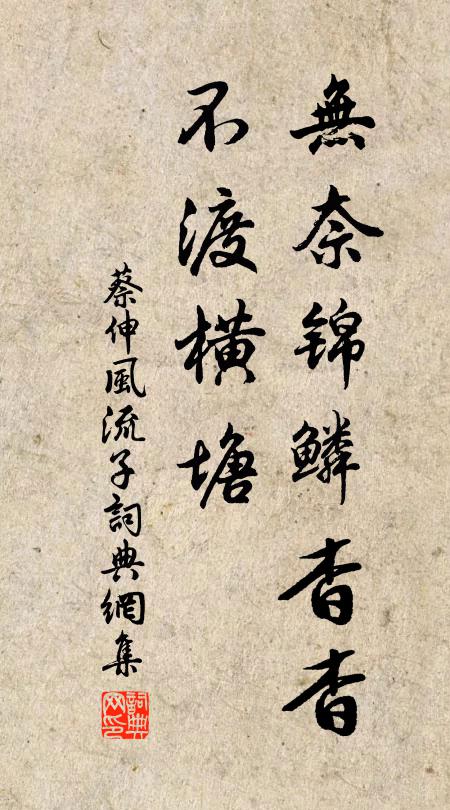 無奈錦鱗杳杳
不渡橫塘
蔡伸風流子詞典網集
詞典網印